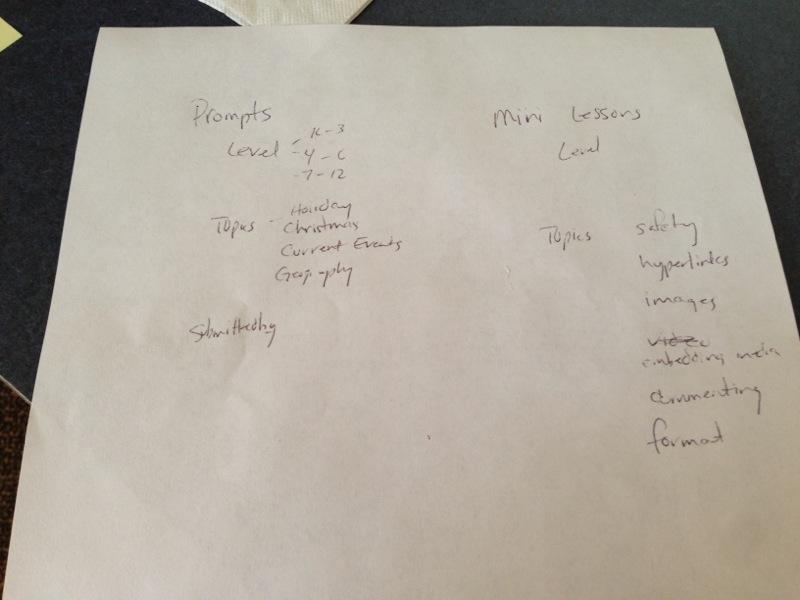 Prompts
Level - K-3
- 4-6
- 7-12
Topics - Holiday
Christmas
Current Events
Geography
Submitted by
Mini Lessons
Level
Topics safety
hyperlinks
images
video
embedding media
commenting
format